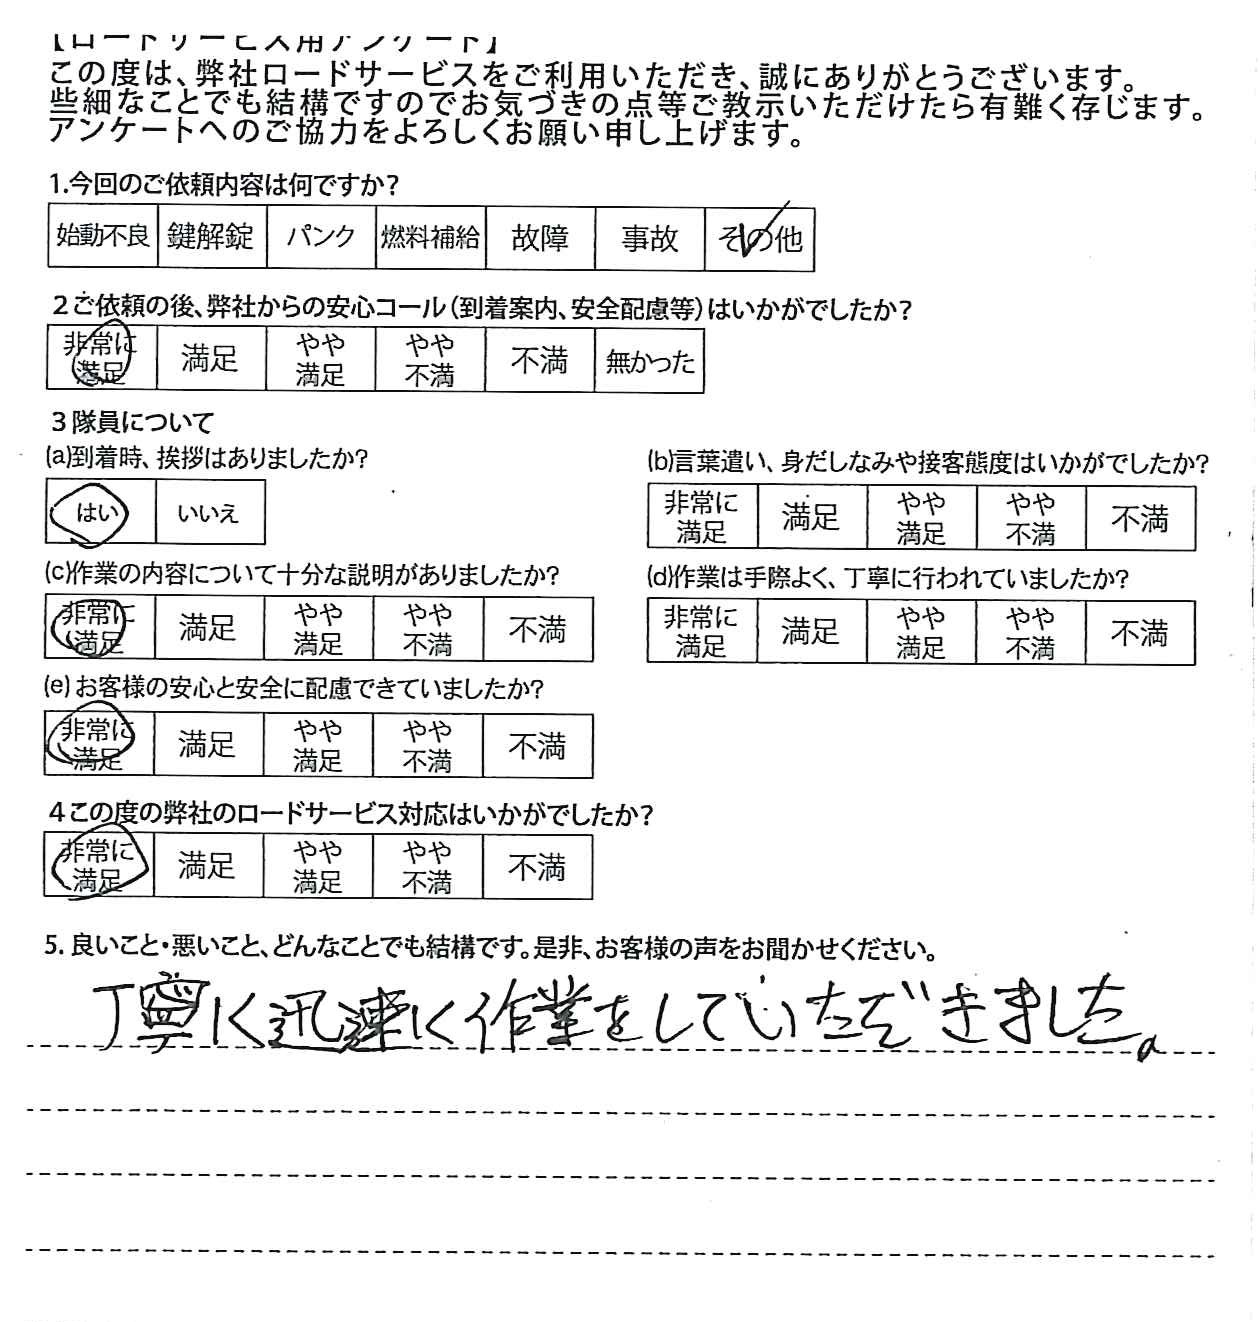 【ロードサービス用アンケート】
この度は、弊社ロードサービスをご利用いただき、誠にありがとうございます。
些細なことでも結構ですのでお気づきの点等ご教示いただけたら有難く存じます。
アンケートへのご協力をよろしくお願い申し上げます。
1.今回のご依頼内容は何ですか?
始動不良 鍵解錠 パンク 燃料補給 故障 事故 その他
2ご依頼の後、弊社からの安心コール(到着案内、安全配慮等)はいかがでしたか?
非常に満足 満足 やや満足 やや不満 不満 無かった
3隊員について
(a)到着時、挨拶はありましたか?
はい いいえ
(b)言葉遣い、身だしなみや接客態度はいかがでしたか?
非常に満足 満足 やや満足 やや不満 不満
(c)作業の内容について十分な説明がありましたか?
非常に満足 満足 やや満足 やや不満 不満
(d)作業は手際よく、丁寧に行われていましたか?
非常に満足 満足 やや満足 やや不満 不満
(e)お客様の安心と安全に配慮できていましたか?
非常に満足 満足 やや満足 やや不満 不満
4この度の弊社のロードサービス対応はいかがでしたか?
非常に満足 満足 やや満足 やや不満 不満
5. 良いこと・悪いこと、どんなことでも結構です。是非、お客様の声をお聞かせください。
丁寧に迅速に作業をしていただきました。